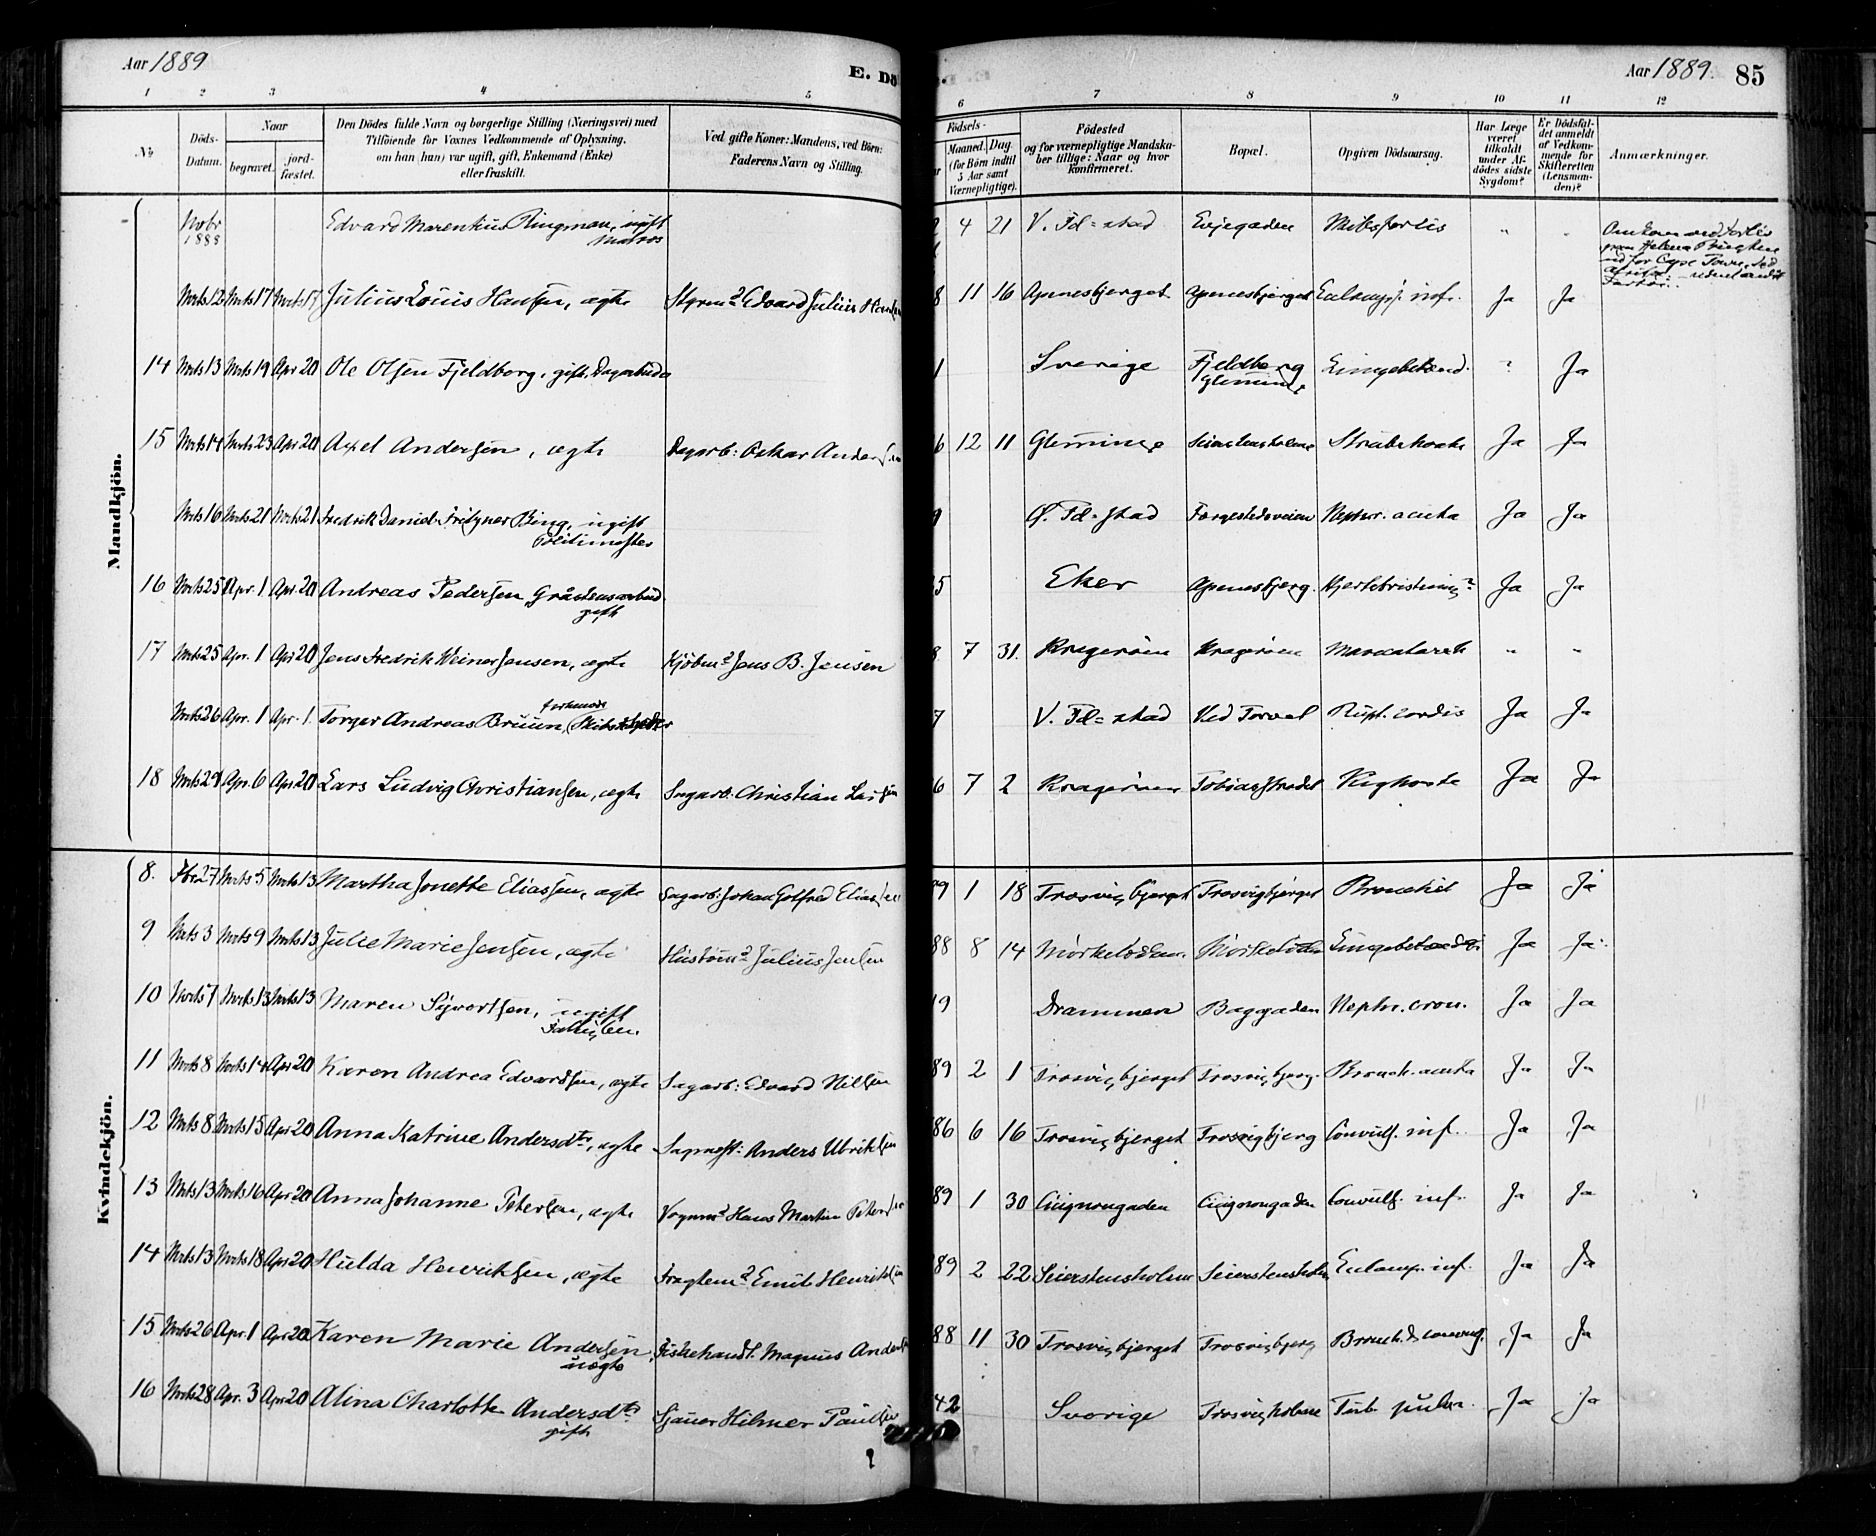 Aar 1889
E. Dö
Aar 1889. 85
1 2 3 4 5 6 7 8 9 10 11 12
No
Döds-Datum.
Naar
begravet.
jord-fæstet.
Den Dödes fulde Navn og borgerlige Stilling (Næringsvei) med
Tilföiende for Voxnes Vedkommende af Oplysning,
om han (hun) var ugift, gift, Enkemand (Enke)
eller fraskilt.
Ved gifte Koner: Mandens, ved Börn:
Faderens Navn og Stilling.
Födsels-
Maaned. Dag.
(for Börn indtil
5 Aar samt
Værnepligtige).
Födested
og for værnepligtige Mandska-
ber tillige: Naar og hvor
konfirmeret.
Bopæl.
Opgiven Dödsaarsag.
Har Læge
været
tilkaldt
under Af-
dödes sidste
Sygdom?
Er Dödsfal-
det anmeldt
af Vedkom-
mende for
Skifteretten
(Lensman-
den)?
Anmærkninger.
Mandkjön.
Novbr 1888 Edvard Marentius Ringman, ugift 4 21 V. Fd=stad Evjegaden Skibsforlis " "
Matros
Omkom ved Forlis
Mrts 12 Mrts 17 Mrts 17 Julius Louis Hansen, ægte Styrmd Edvard Julius Han 8 11 16 Apenesbjerget Apenesbjerget Eclamps. inf. Ja Ja
14 Mrts 13 Mrts 19 Apr 20 Ole Olsen Fjeldborg, gift. Dagarbeider 1 Sverige Fjeldberg Glemminge Lungebetænd. " Ja
15 Mrts 14 Mrts 23 Apr 20 Axel Andersen, ægte Dagarb: Oskar Andersen 6 12 11 Glemminge Seierstensholmen Strubehoste Ja Ja
Mrts 16 Mrts 21 Mrts 21 Fredrik Daniel Bing, ugift 9 Ø. Fd=stad Færgestedsveien Nephr. acuta Ja Ja
Politimester
16 Mrts 25 Apr. 1 Apr. 20 Andreas Pedersen, Gråstensarbeid. 5 Eker Apenesbjerg. Hjertebristning? Ja Ja
gift
17 Mrts 25 Apr. 1 Apr 20 Jens Fredrik Weiner Jensen, ægte Kjöbmd Jens B. Jensen 8 7 31. Kragerøen Kragerøen " "
Mrts 26 Apr. 1 Apr. 1. Torger Andreas Bruun, 7 V. Fd=stad Ved Torvet Rupt. cordis Ja Ja
18 Mrts 29 Apr. 6 Apr 20 Lars Ludvig Christiansen, ægte Sagarb: Christian Larsen 6 7 2 Kragerøen Tobiasstrædet Kighoste Ja Ja
Kvindekjön.
8. Fbr 27 Mrts 5 Mrts 13 Martha Jonette Eliassen, ægte Sagarb: Johan Gotfred Eliassen 89 1 18 Trosvigbjerget Trosvigbjerget Bronchit Ja Ja
9 Mrts 3 Mrts 9 Mrts 13 Julie Marie Jensen, ægte Hustømd Julius Jensen 88 8 14 Lungebetænd. Ja Ja
10 Mrts 7 Mrts 13 Mrts 13 Maren Syvertsen, ugift 19 Drammen Baggaden Nephr. cron. Ja Ja
11 Mrts 8 Mrts 14 Apr 20 Karen Andrea Edvardsen, ægte Sagarb: Edvard Nilsen 89 2 1 Trosvigbjerget Trosvigbjerg. Bronch. acuta Ja Ja
12 Mrts 8 Mrts 15 Apr 20 Anna Katrine Andersdtr, ægte Sagmest: Anders Ulriksen 86 6 16 Trosvigbjerget Trosvigbjerg Convuls. inf. Ja Ja
13 Mrts 13 Mrts 16 Apr 20 Anna Johanne Petersen, ægte Vognmd Hans Martin Petersen 89 1 30 Cicignongaden Cicignongaden Convuls. inf. Ja Ja
14 Mrts 13 Mrts 18 Apr 20 Hulda Henriksen, ægte Fragtemd Emil Henriksen 89 2 22 Seierstensholmen Seierstensholm Eclamps. inf. Ja Ja
15 Mrts 26 Apr. 1 Apr 20 Karen Marie Andersen Fiskehandl. Magnus Anders 88 11 30 Trosvigbjerget Trosvigbjerg Bronch. & convuls. Ja Ja
uægte
16 Mrts 28 Apr. 3 Apr 20 Alina Charlotte Andersdtr Sjauer Hilmer Paulsen 42 Sverige Trosvigholmen Tub. pulm. Ja Ja
gift